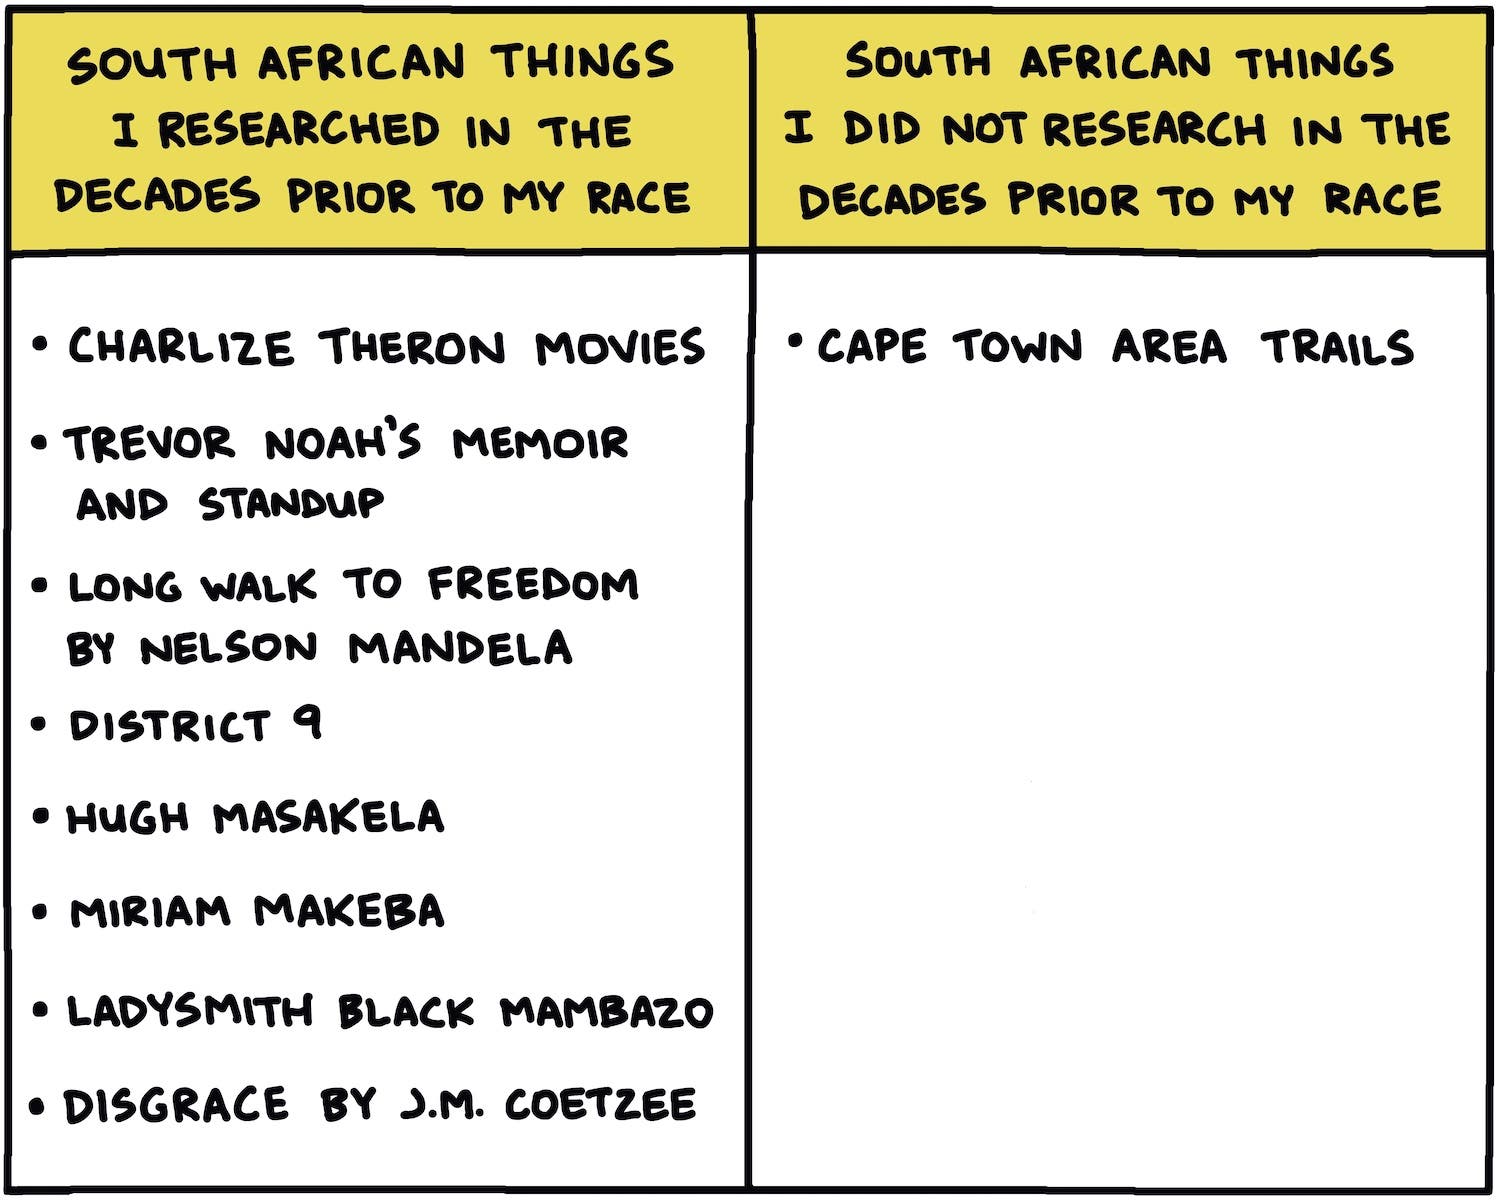 SOUTH AFRICAN THINGS
I RESEARCHED IN THE
DECADES PRIOR TO MY RACE
SOUTH AFRICAN THINGS
I DID NOT RESEARCH IN THE
DECADES PRIOR TO MY RACE
• CHARLIZE THERON MOVIES
• TREVOR NOAH'S MEMOIR
AND STANDUP
• LONG WALK TO FREEDOM
BY NELSON MANDELA
• DISTRICT 9
• HUGH MASAKELA
• MIRIAM MAKEBA
• LADYSMITH BLACK MAMBAZO
• DISGRACE BY J.M. COETZEE
• CAPE TOWN AREA TRAILS